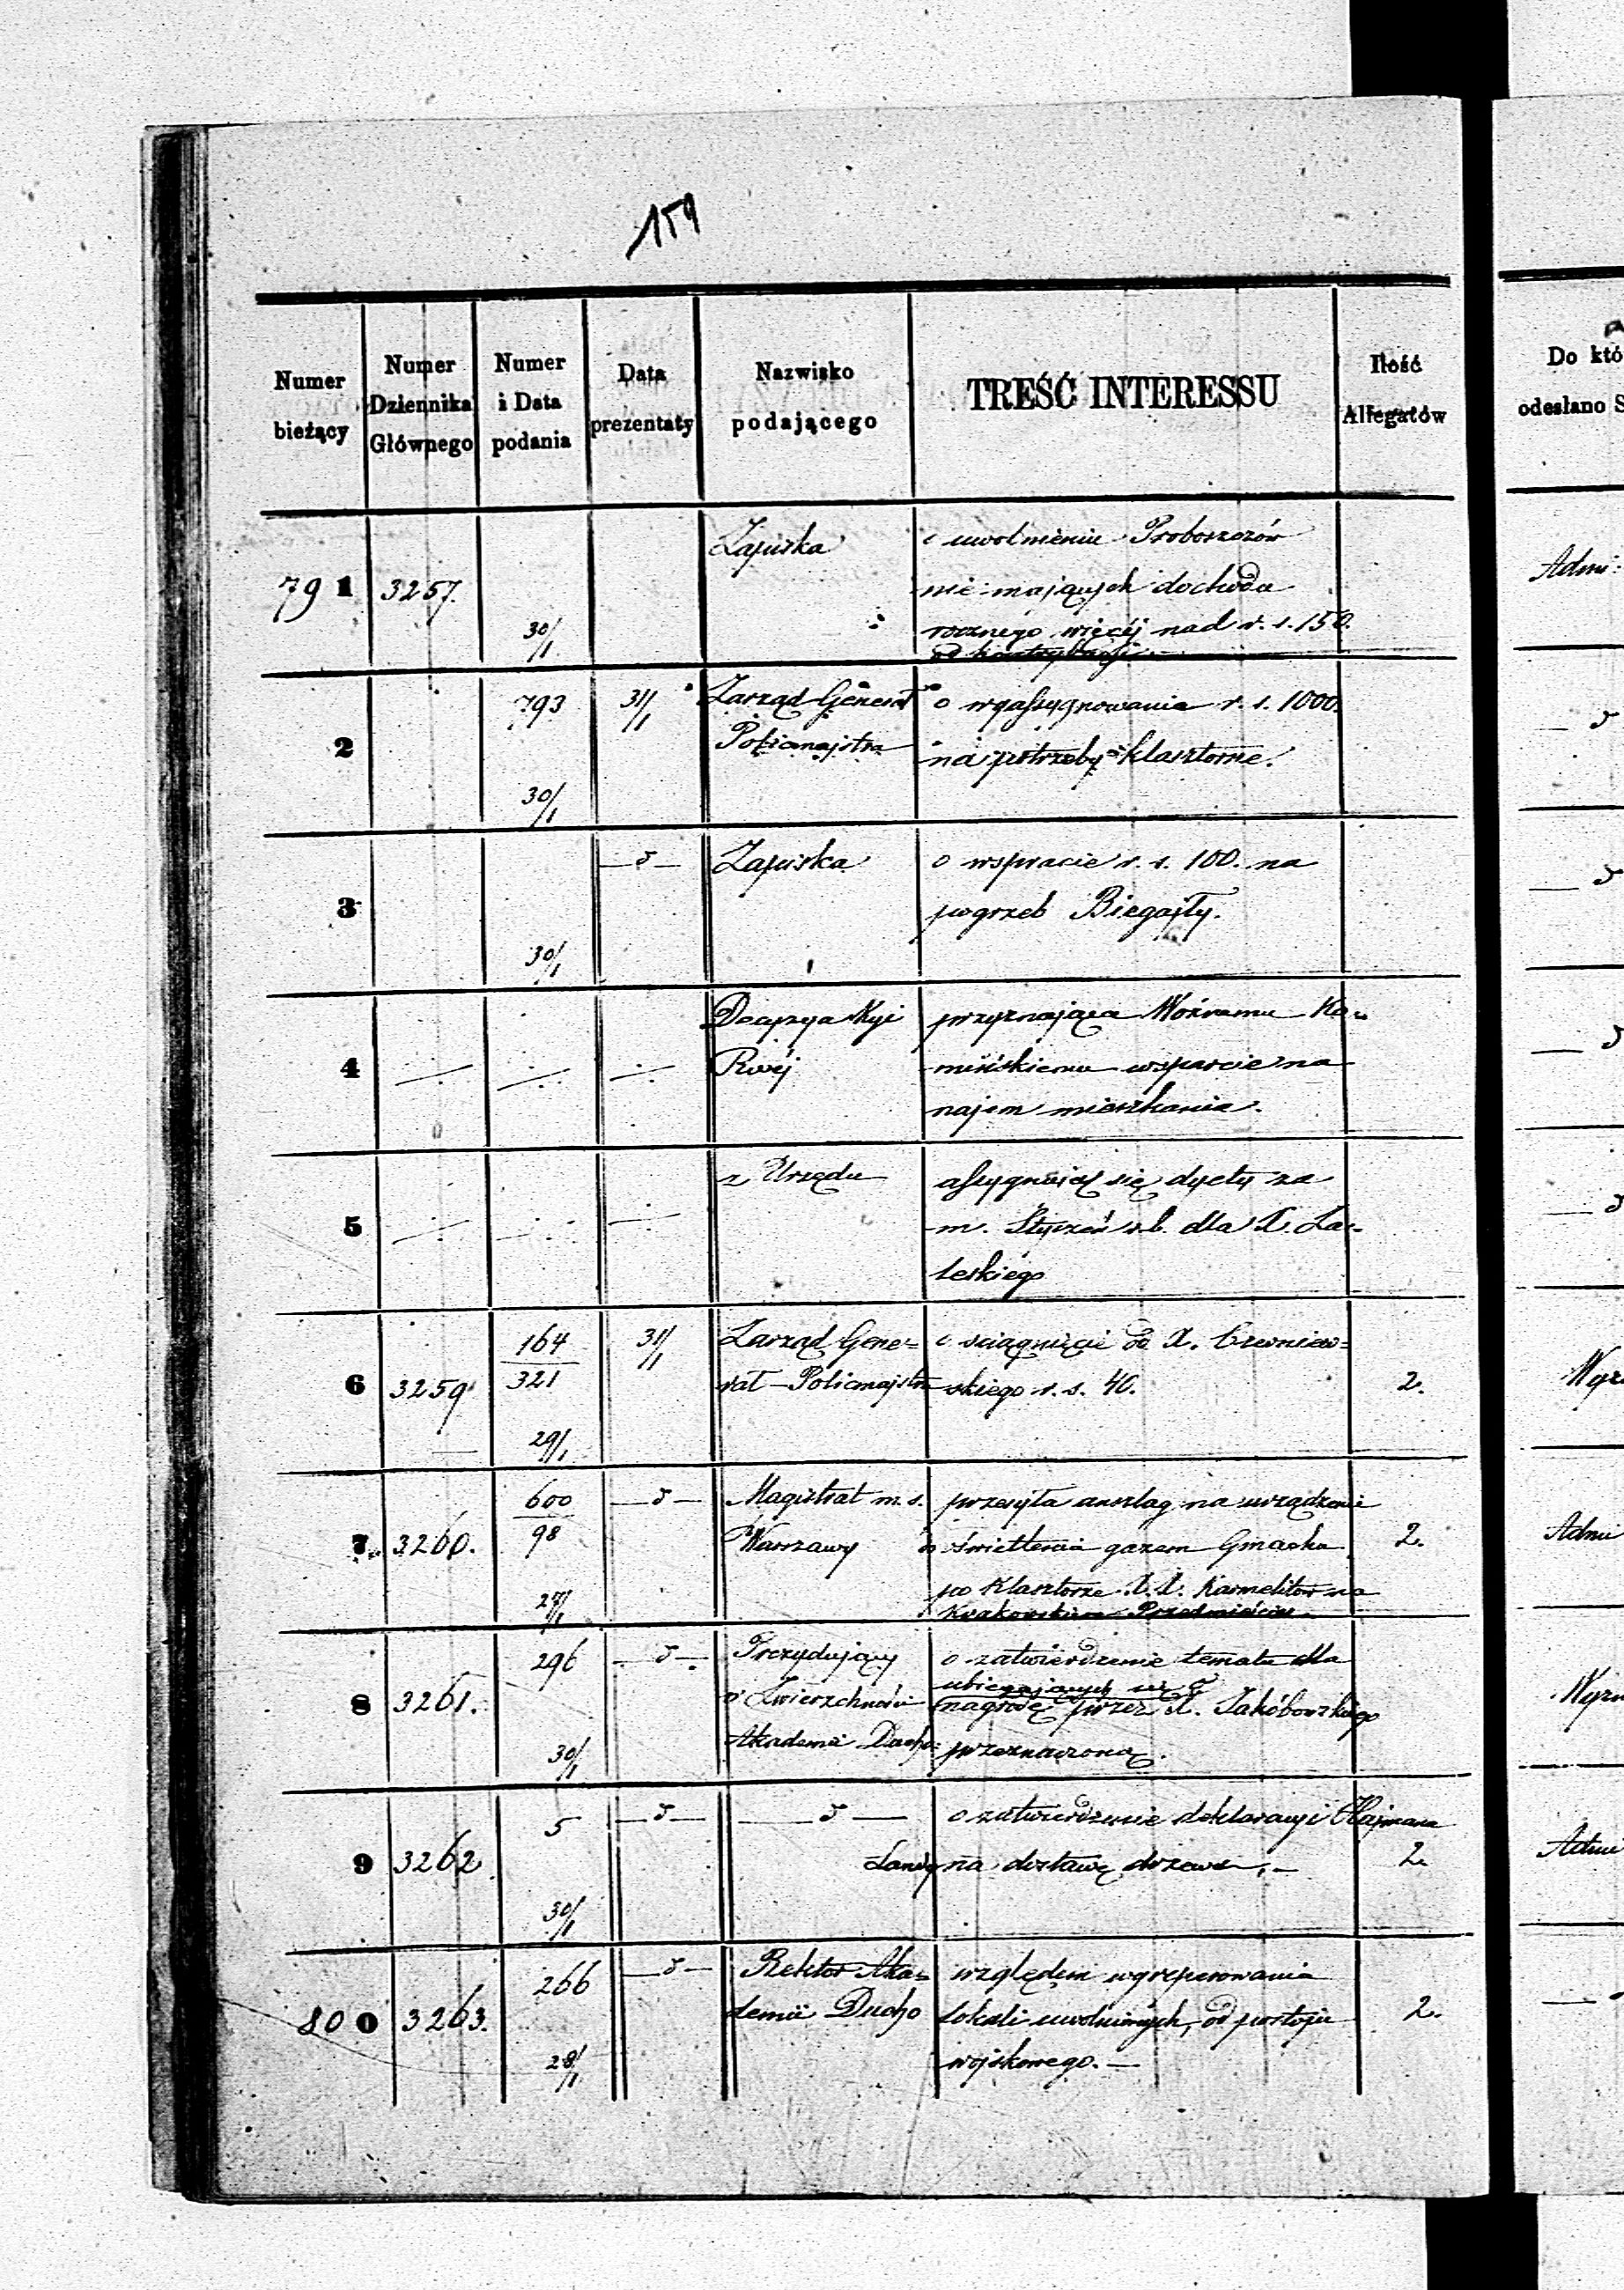 159
Numer bieżący
Numer Dziennika Głównego
Numer i Data podania
Data prezentaty
Nazwisko podającego
TREŚĆ INTERESSU
Ilość Allegatów
Do któ
odesłano S
79 1 3257. 30/1 Zapiska o uwolnieniu Proboszczów
nie mających dochodu
rocznego więcej nad r. s. 150.
od kontrybucji
Admi:
2 793 30/1 31/1 Zarząd Generał Policmajstra o wyassygnowania r. s. 1000.
na potrzeby klasztorne.
3 30/1 Zapiska o wsparcie r. s. 100. na
pogrzeb Biegajły.
4 Decyzya Kyi Rwéj przyznająca Woźnemu Ka=
mińskiemu wsparcie na
najem mieszkania.
5 z Urzędu assygnują się dyety za
m. Styczeń r.b. dla X. Za=
leskiego
6 3259 164/321 29/1 31/1 Zarząd Gene=
rał-Policmajstra
o sciągnięcie od X.
skiego r. s. 40.
2.
Wyz
7 3260. 600/98 27/1 Magistrat m. s.
Warszawy
przesyła anszlag na urządzenie
oświetlenia gazem Gmachu
po Klasztorze X.X. Karmelitów na
Krakowskiem Przedmieściu
2.
Admi
8 3261. 296 30/1 Prezydujący
w Zwierzchności
Akademii Ducho:
o zatwierdzenie tematu dla
ubiegających się o
nagrodę przez X. Jakóbowskiego
przeznaczoną.
Wyzn
9 3262 5 30/1 o zatwierdzenie deklaracyi Hajmana
na dostawę drzewa.
2.
Admi
80 0 3263. 266 28/1 Rektor Aka=
demii Ducho
względem wyreperowania
lokali uwolnionych, od postoju
wojskowego.
2.